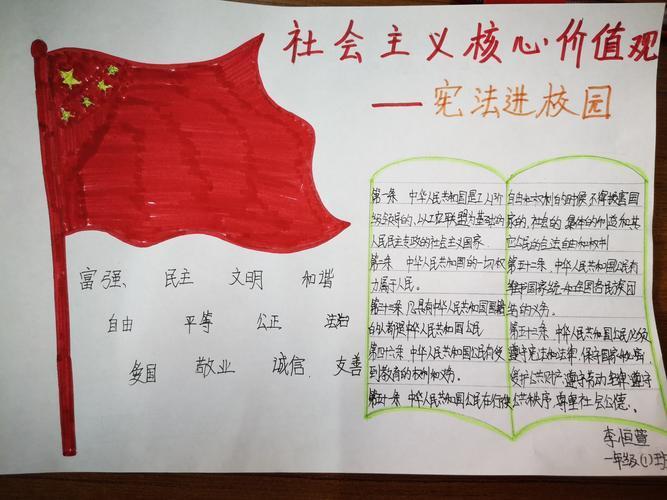 社会主义核心价值观
——宪法进校园
富强、 民主 文明 和谐
自由 平等 公正 法治
爱国 敬业 诚信 友善
第一条 中华人民共和国是工人阶
级领导的、以工农联盟为基础的
人民民主专政的社会主义国家
第二条 中华人民共和国的一切权
力属于人民。
第三十三条 凡具有中华人民共和国国籍
的人都是中华人民共和国公民
第四十六条 中华人民共和国公民有受
到教育的权利和义务。
第五十一条 中华人民共和国公民在行使
自由和权利的时候 不得损害国
家的、社会的、集体的利益和其
它公民的合法自由和权利
第五十二条 中华人民共和国公民有
维护国家统一和全国各民族团
结的义务。
第五十三条 中华人民共和国公民必须
遵守宪法和法律 保守国家秘密
爱护公共财产 遵守劳动纪律 遵守
公共秩序 尊重社会公德。
李恒萱
一年级(1)班